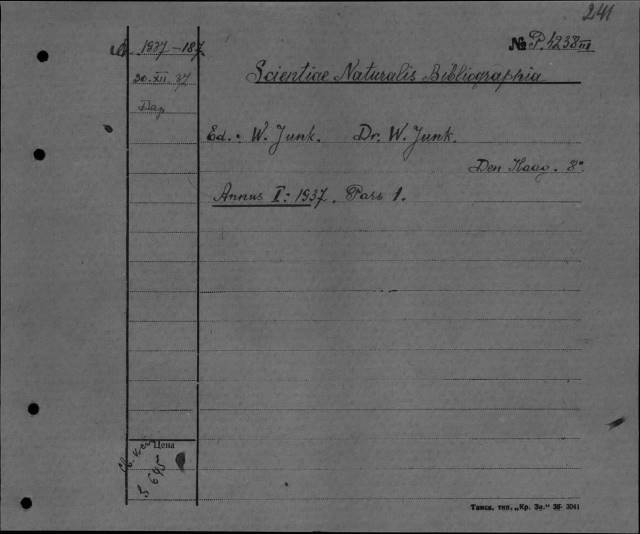 241
1937-187
№ P.4238 III
20.XII.37
Scientiae Naturalis Bibliographia
Ed.: W. Junk. Dr. W. Junk.
Den Haag. 8°
Annus I: 1937. Pars 1.
Цена
645
Тамск. тип. „Кр. Зн." 3041